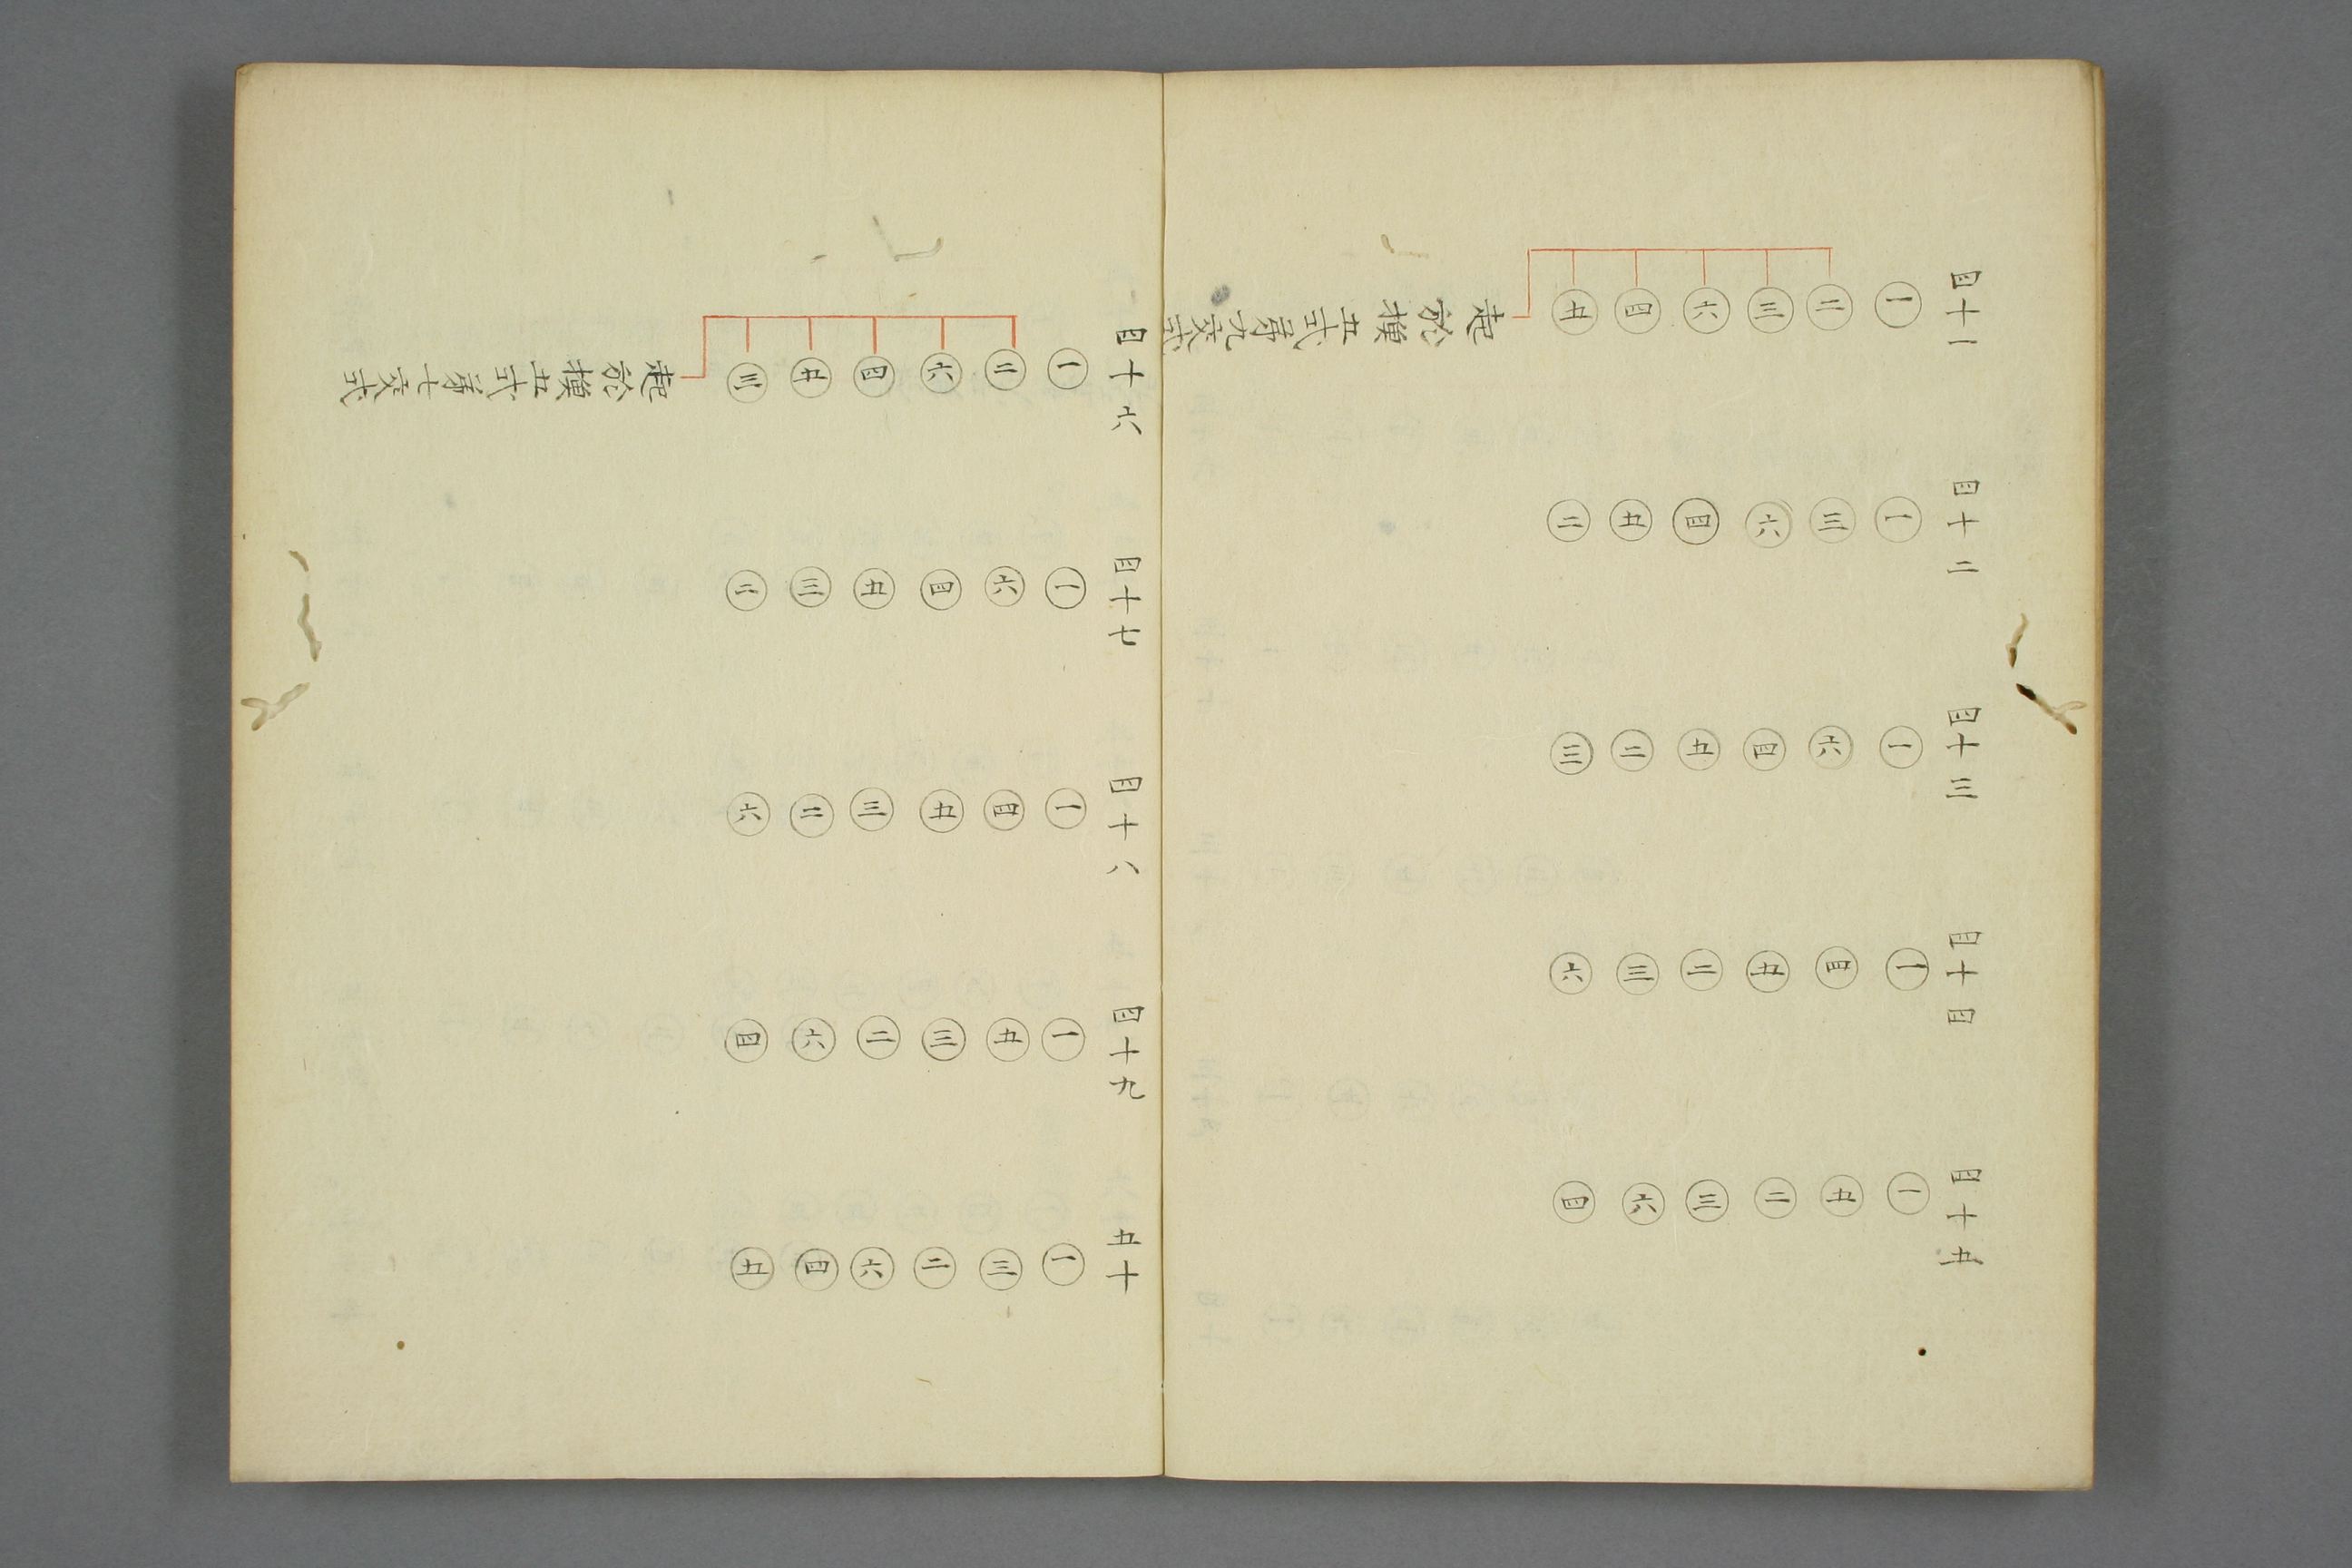 四十一
一 二 三 六 四 五
起於換五式第九交式
四十二
一 三 六 四 五 二
四十三
一 六 四 五 二 三
四十四
一 四 五 二 三 六
四十五
一 五 二 三 六 四
四十六
一 二 六 四 五 三
起於換五式第七交式
四十七
一 六 四 五 三 二
四十八
一 四 五 三 二 六
四十九
一 五 三 二 六 四
五十
一 三 二 六 四 五